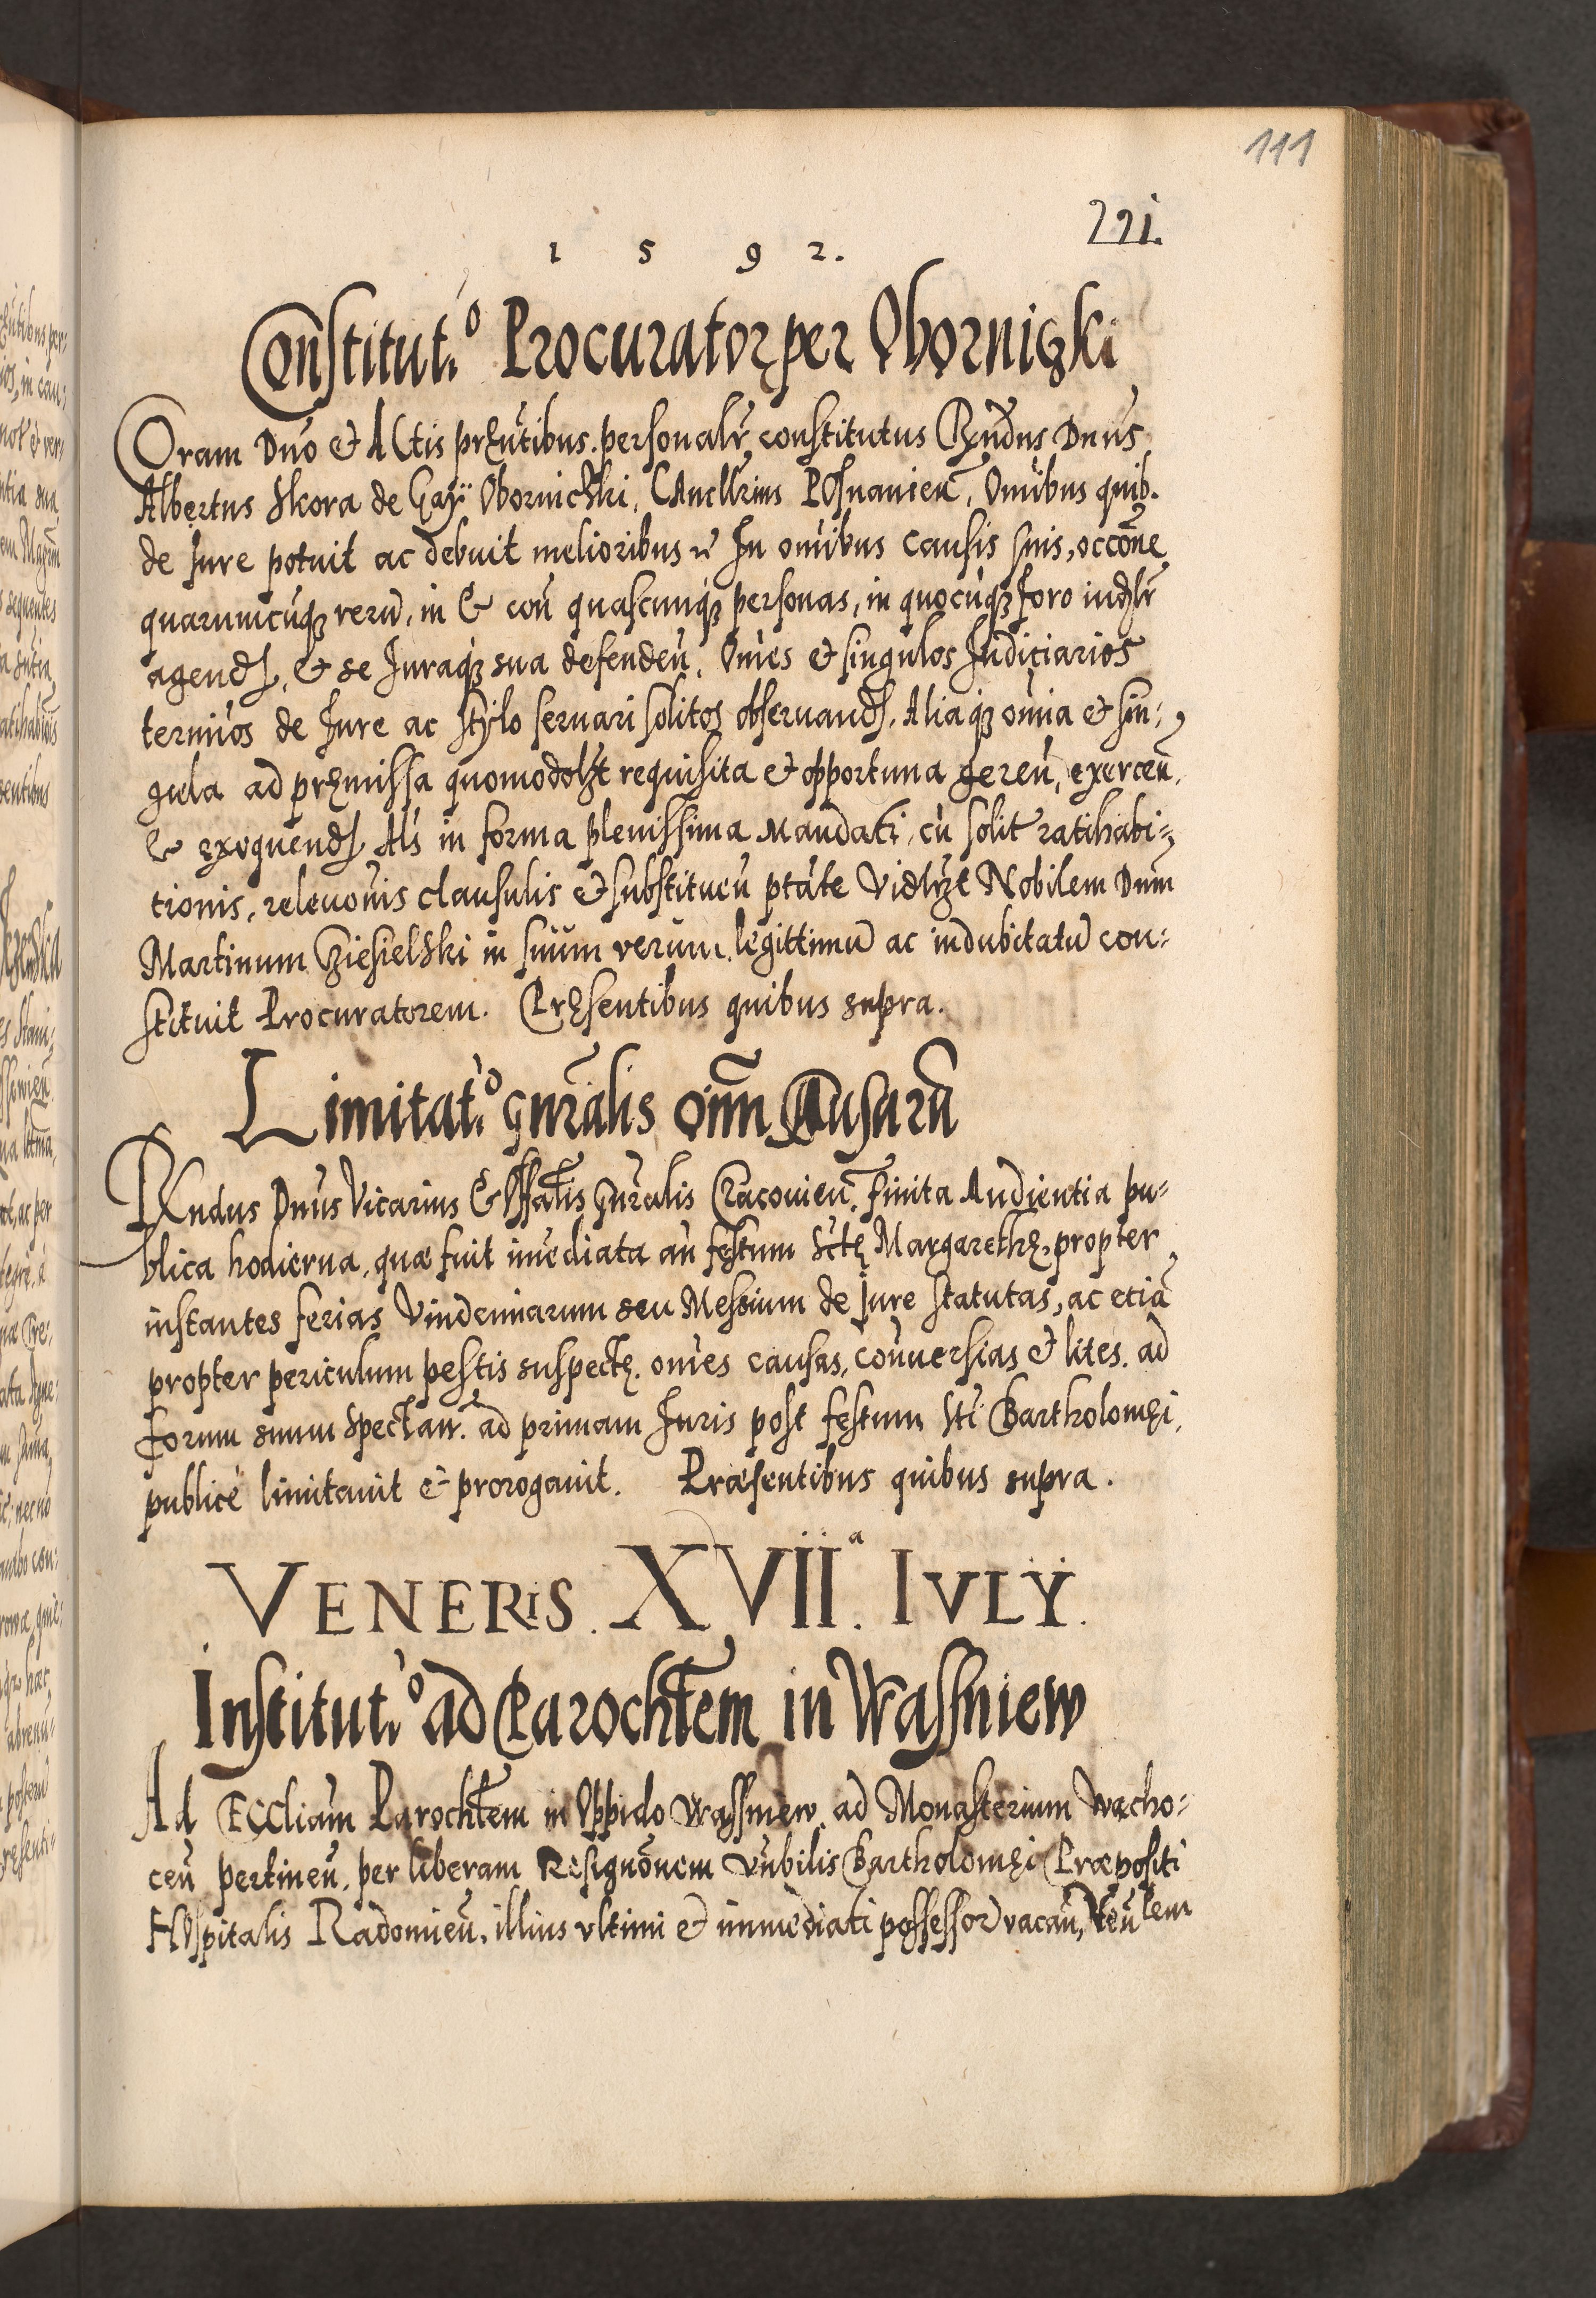 111
221.
1 5 9 2.
Constitut:o Procurator per Oborniczki
Coram Dno et Actis pręntibus personalr constitutus Rndus Dnus
Albertus Skora de Gaÿ Obornichki, Cancllrius Posnanien, Omibus quib.
de Jure potuit ac debuit melioribus In omibus causis suis, occone
quarumcuqz reru, in & con quascunqz personas, in quocuqz foro iudlr
agend, & se Juraqz sua defenden, Omes et singulos Judiciarios
termios de Jure ac stylo seruari solitos obseruand, Aliaqz omia et sin-
gula ad pręmissa quomodolzt requisita et opportuna geren, exercen,
& exequend, Als in forma plenissima Mandati, cu solit ratihabi-
tionis, releuonis clausulis et substituen ptate Vidlzt Nobilem Dnm
Martinum Cziesielski in suum verum legittimu ac indubitatu con-
stituit Procuratorem. Pręsentibus quibus supra.
Limitat:o gnralis oim Causaru
Rndus Dnus Vicarius & Offalis Gnralis Cracouien. Finita Audientia pu-
blica hodierna, quæ fuit imediata an festum Sctę Margarethę, propter
instantes ferias Vindemiarum seu Messium de Jure statutas, ac etia
propter periculum pestis suspectę, omes causas, conuersias et lites ad
forum suum spectan. ad primam Juris post festum Sti Bartholomęi,
publice limitauit et prorogauit. Præsentibus quibus supra.
VENERIS. XVII.a IVLY.
Institut:o ad Parochlem in Wassniew
Ad Eccliam Parochlem in Oppido Wassniew ad Monasterium Wacho-
cen pertinen, per liberam Resignonem Vnbilis Bartholomęi Præpositi
Hospitalis Radomien, illius vltimi et immediati possessor vacan, Venlem